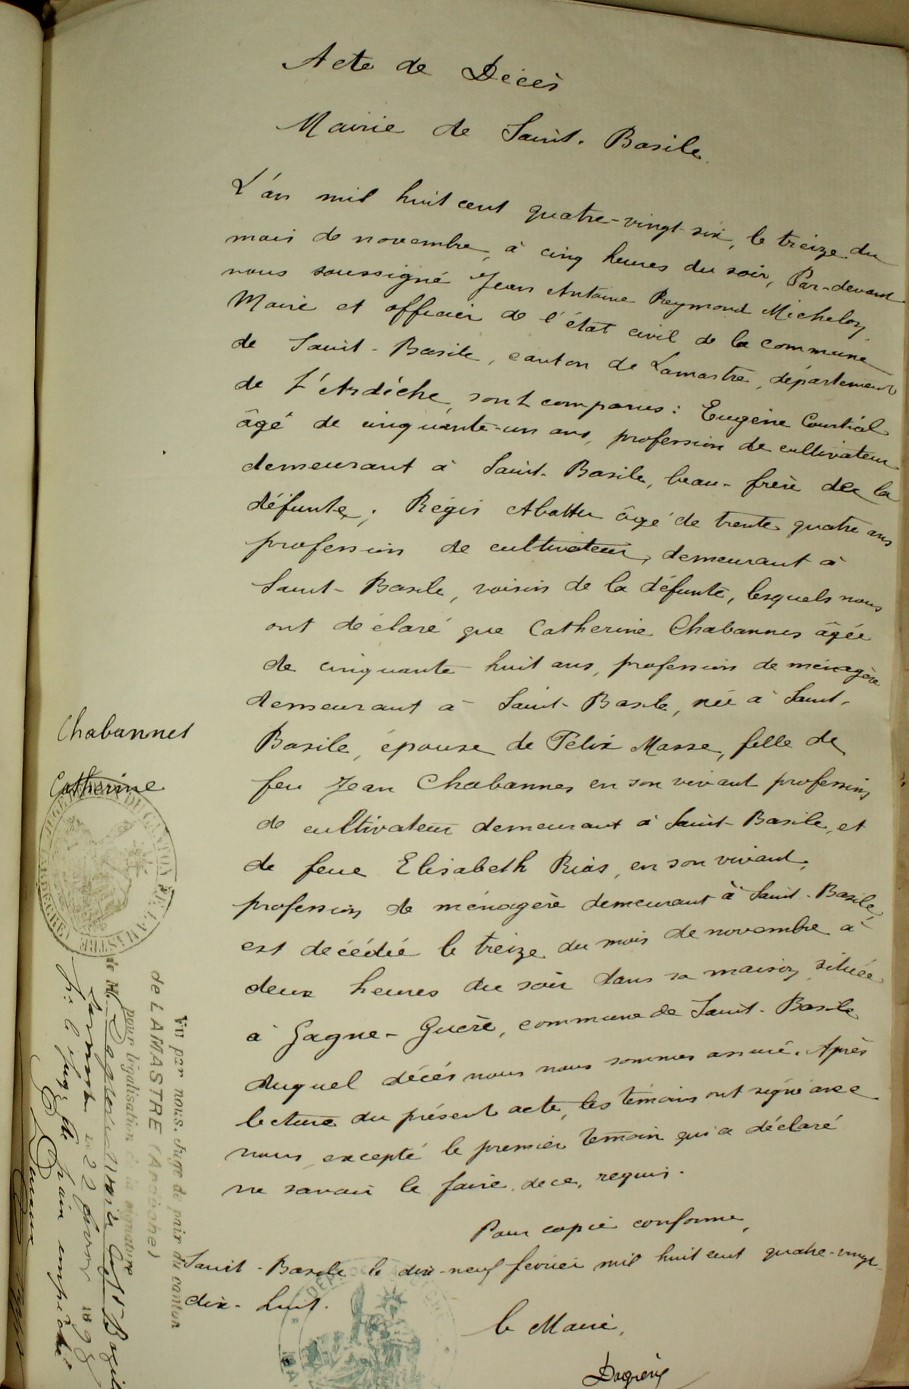 Acte de Décès
Mairie de Saint-Basile
L'an mil huit cent quatre-vingt six, le treize du
mois de novembre, à cinq heures du soir, Par-devant
nous soussigné Jean Antoine Reymond Michelon,
Maire et officier de l'état civil de la commune
de Saint-Basile, canton de Lamastre, département
de l'Ardèche, sont comparus : Eugène Courtial
âgé de cinquante-un ans, profession de cultivateur
demeurant à Saint-Basile, beau-frère de la
défunte, Régis Abattu âgé de trente quatre ans
profession de cultivateur, demeurant à
Saint-Basile, voisin de la défunte, lesquels nous
ont déclaré que Catherine Chabannes âgée
de cinquante huit ans, profession de ménagère
demeurant à Saint-Basile, née à Saint-
Basile, épouse de Félix Masse, fille de
feu Jean Chabannes en son vivant profession
de cultivateur demeurant à Saint-Basile, et
de feue Elisabeth Riás, en son vivant,
profession de ménagère demeurant à Saint-Basile,
est décédée le treize du mois de novembre à
deux heures du soir dans sa maison située
à Gagne-Guère, commune de Saint-Basile
duquel décès nous nous sommes assuré. Après
lecture du présent acte, les témoins ont signé avec
nous, excepté le premier témoin qui a déclaré
ne savoir le faire, de ce, requis.
Pour copie conforme,
Saint-Basile le dix-neuf février mil huit cent quatre-vingt-
dix-huit.
Le Maire,
Chabannes
Catherine
JUGE DE PAIX DU CANTON DE LAMASTRE
(ARDECHE)
Vu par nous, Juge de paix du canton
de LAMASTRE (Ardèche)
pour légalisation de la signature
de M. Maire de St-Bazile
Lamastre le 22 février 1898
Pr le Juge de Paix empêché